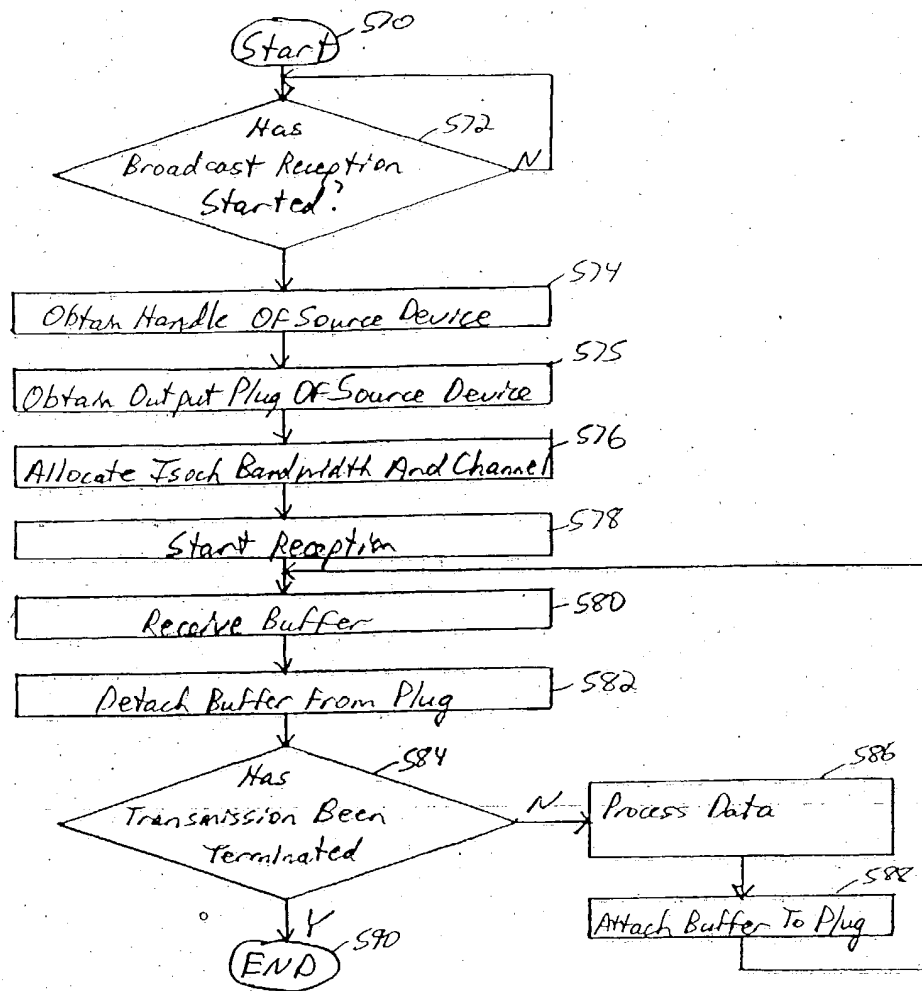 Start
570
Has
Broadcast Reception
Started?
572
N
574
Obtain Handle Of Source Device
575
Obtain Output Plug Of Source Device
576
Allocate Isoch Bandwidth And Channel
578
Start Reception
580
Receive Buffer
582
Detach Buffer From Plug
584
Has
Transmission Been
Terminated
N
586
Process Data
588
Attach Buffer To Plug
Y
590
END